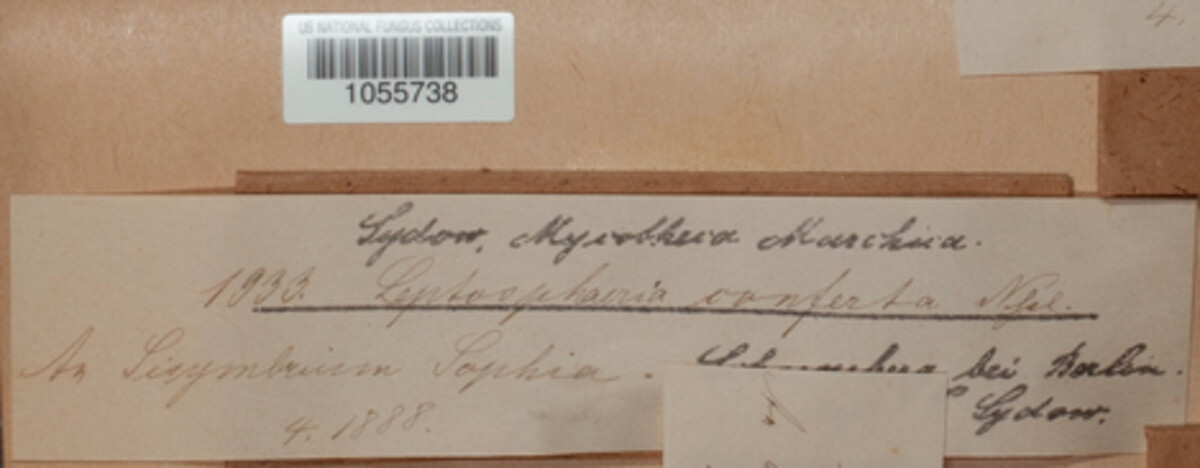 US NATIONAL FUNGUS COLLECTIONS
1055738
4.
Sydow, Mycotheca Marchica.
1933. Leptosphaeria conferta Nssl.
An Sisymbrium Sophia. bei Berlin.
4. 1888. Sydow.